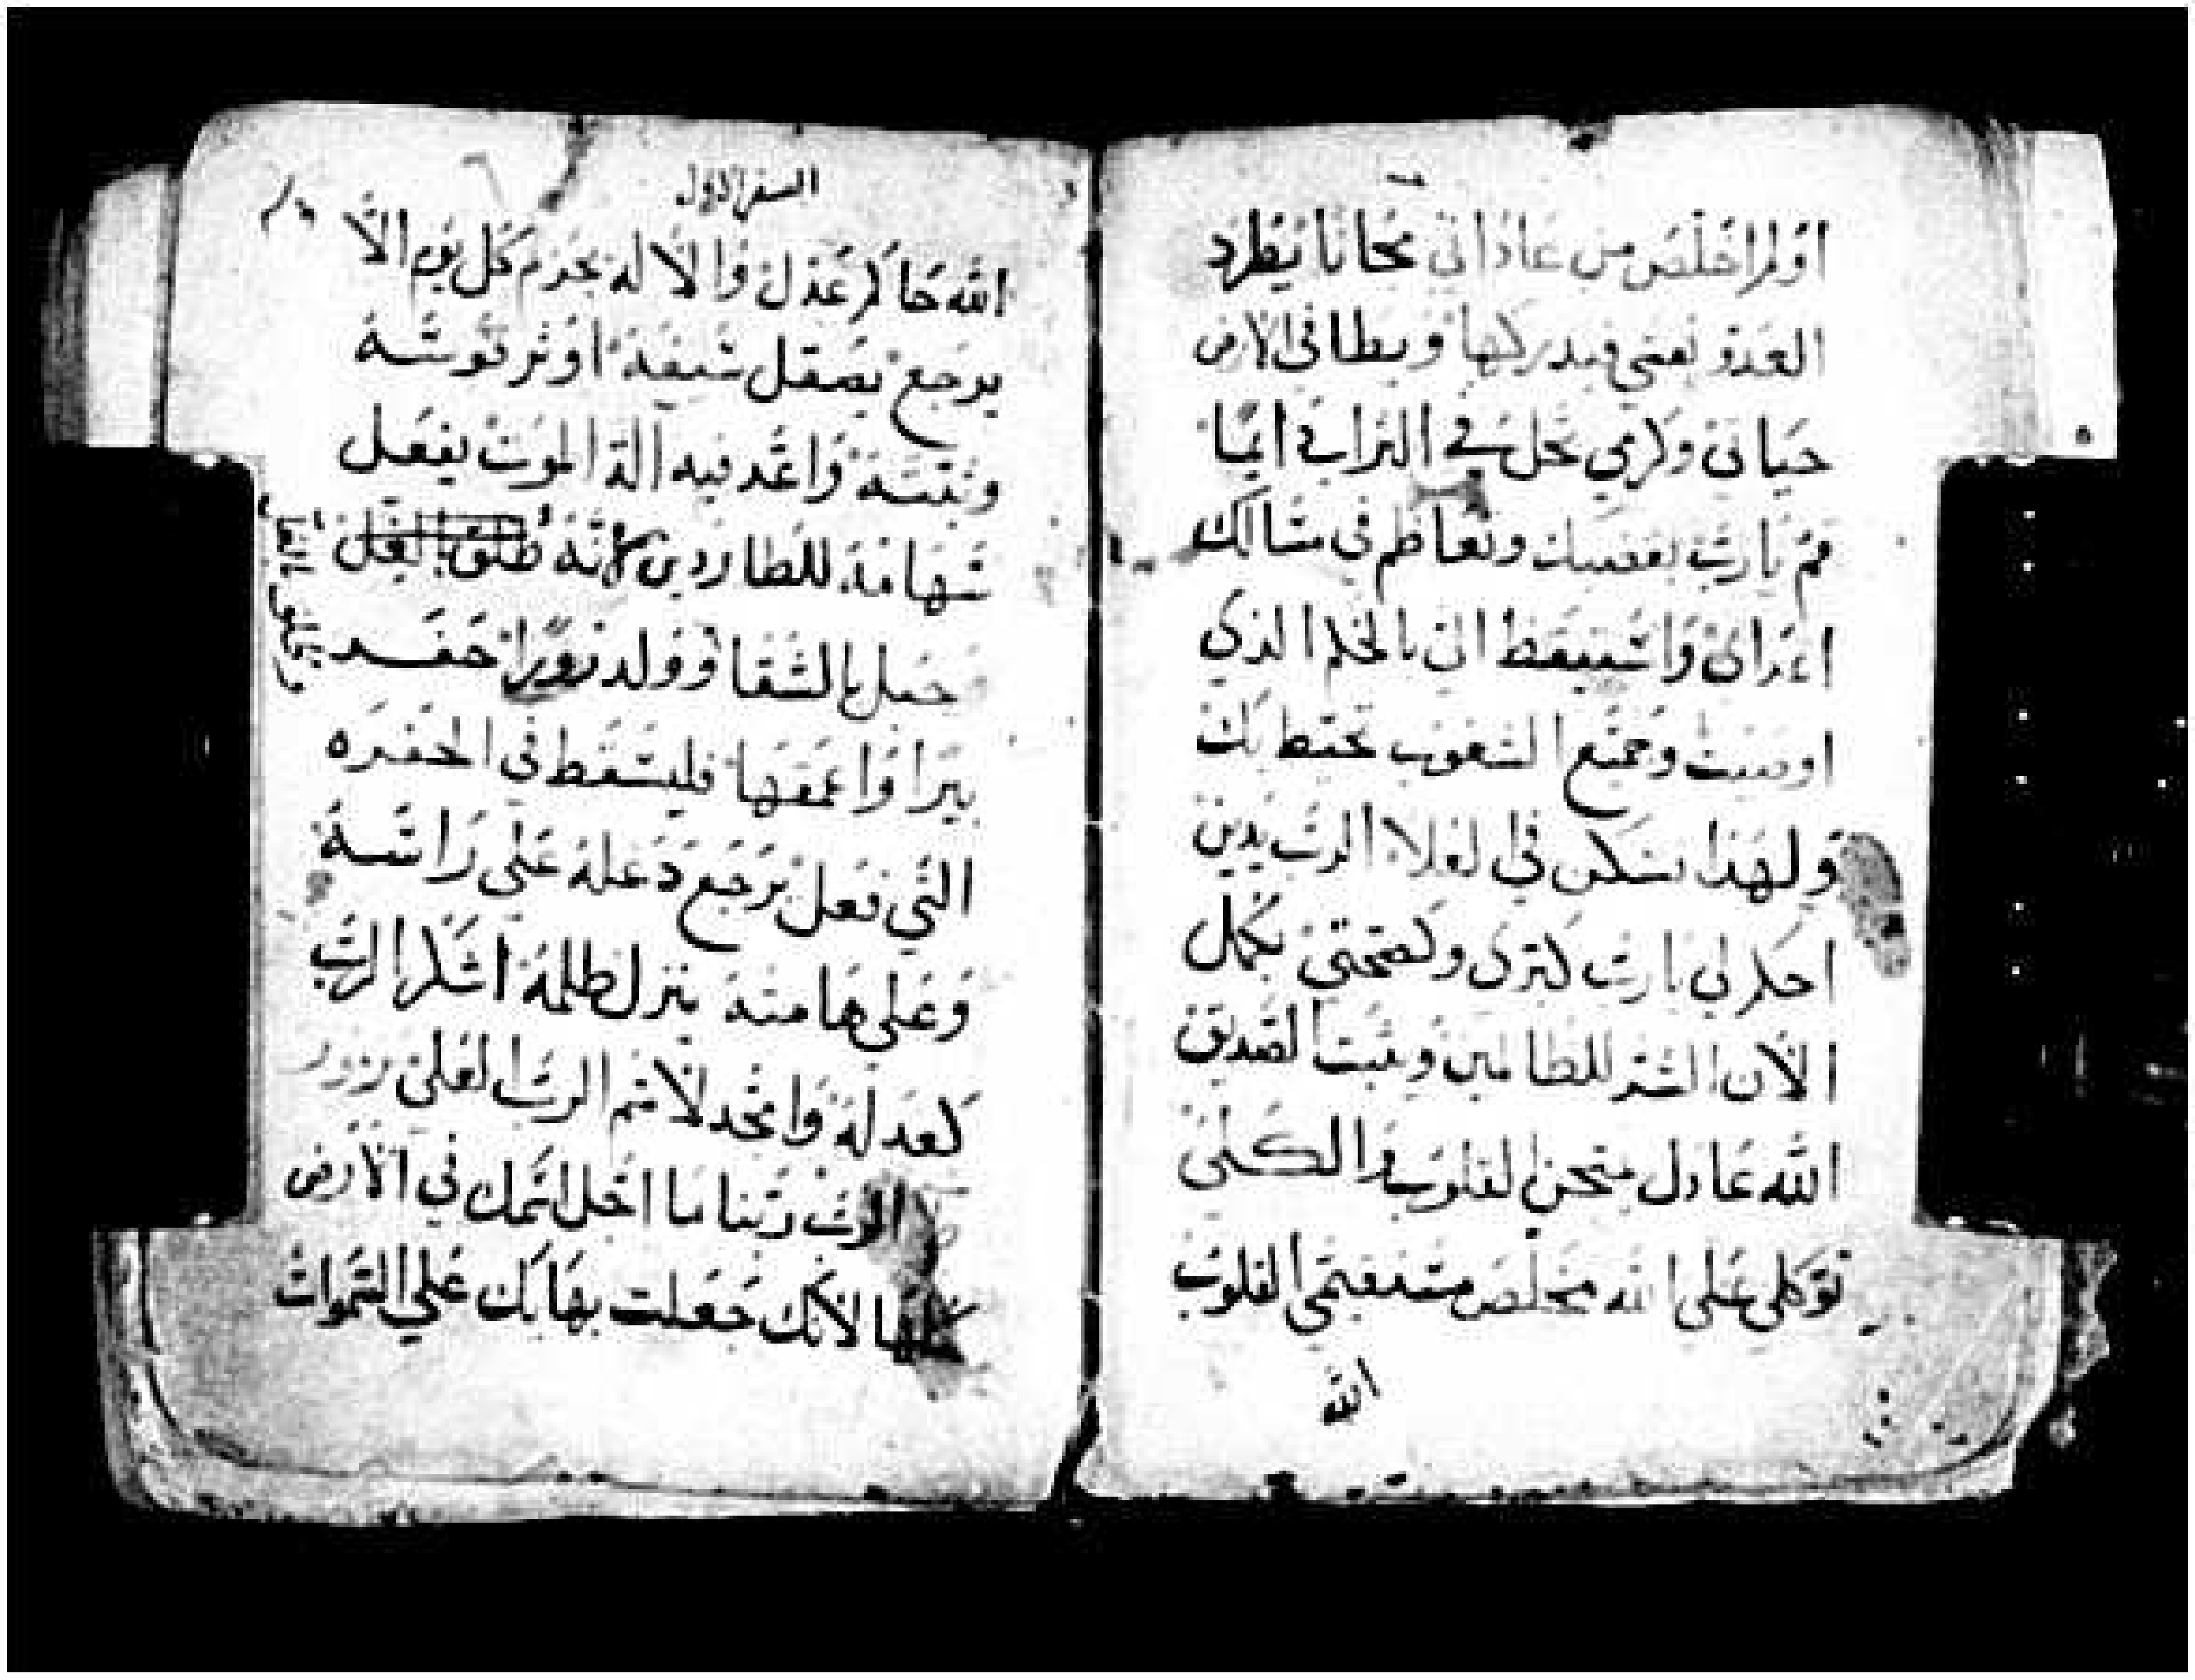 اولم اخلص من عاداني مجانا يطرد
العدو نفسي فيدركها ويطا في الارض
حياتي وكرمي تحل في التراب ايما
قم يارب بغضبك وتعاظم في مسالك
اعدائي واستيقظ الي بالحكم الذي
اوصيت وجميع الشعوب تحتط بك
ولهذا تسكن في العلا الرب يدين
احكم لي يا رب كبري وكصحتي يكمل
الان الشر للظالمين وتثبت الصديق
الله عادل ممتحن القلوب والكلي
توكلي على الله مخلص مستقيمي القلوب
الله
السفر الاول
الله حاكم عدل والاله يجزم كل يوم الا
يرجع يصقل سيفه اوتر قوسه
وثبته واعد فيه الة الموت يفعل
سهامه للطاردين لانه طلق بالظلم
حبل بالشقا وولد زورا حفر
بيرا واعمقها فليسقط في الحفره
التي فعل يرجع دغله على راسه
وعلى هامته ينزل ظلمه اشكر الرب
كعدله وامجد لاسم الرب العلي
الرب ربنا ما اجل اسمك في الارض
كلها لانك جعلت بهايك على السموات